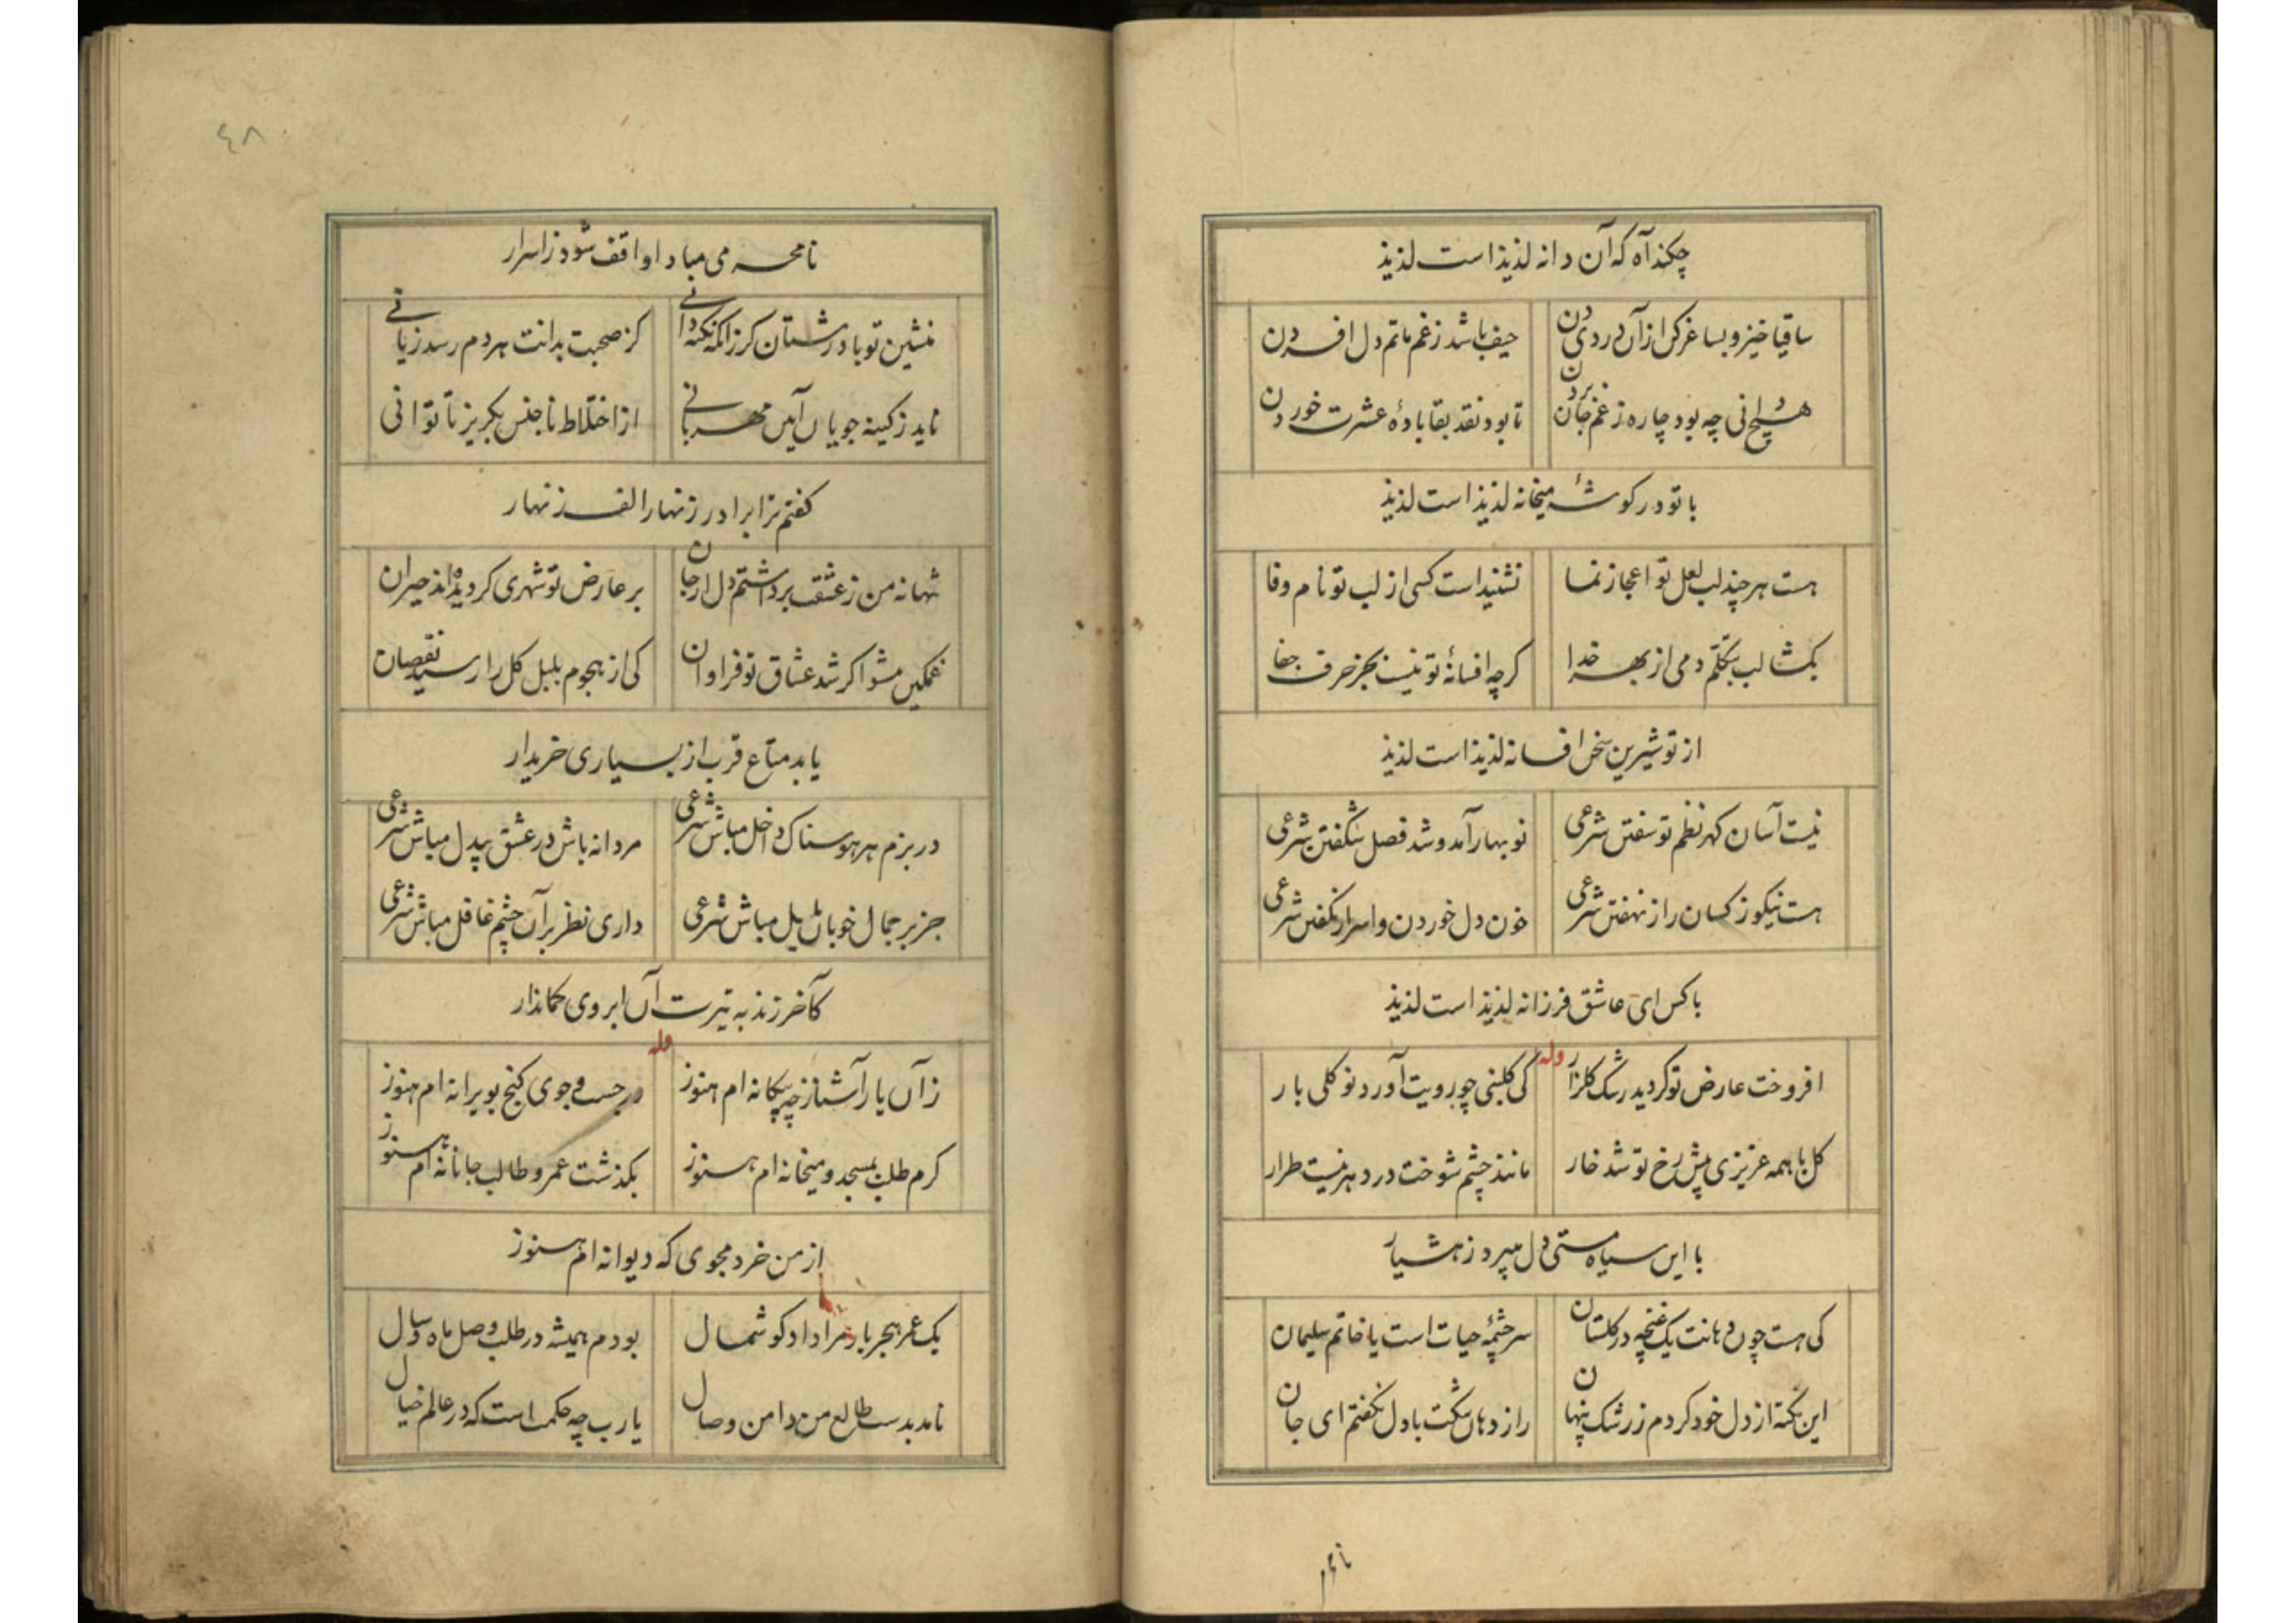 چکند آه که آن دانه لذیذ است لذیذ
ساقیا خیز و بساغر کن از آن دردی دن حیف باشد ز غم ماتم دل افسردن
هیچ دانی چه بود چاره ز غم جان بردن تا بود نقد بقا بادهٔ عشرت خوردن
با تو در کوشهٔ میخانه لذیذ است لذیذ
هست هر چند لب لعل تو اعجاز نما نشنید است کسی از لب تو نام وفا
بکشا لب بتکلم دمی از بهر خدا کرچه افسانهٔ تو نیست بجز حرف جفا
از تو شیرین سخن افسانه لذیذ است لذیذ
نیست آسان کهر نظم تو سفتن شرعی نوبهار آمد و شد فصل شکفتن شرعی
هست نیکو ز کسان راز نهفتن شرعی خون دل خوردن و اسرار نکفتن شرعی
با کس ای عاشق فرزانه لذیذ است لذیذ
وله
افروخت عارض تو کردید رشک کلزار کی کلبنی چو رویت آورد نو کلی بار
کل با همه عزیزی پیش رخ تو شد خار مانند چشم شوخت در دهر نیست طرار
با این سیاه مستی دل میبرد ز هشیار
کی هست چون دهانت یک غنچه در کلستان سرچشمهٔ حیات است یا خاتم سلیمان
این نکته از دل خود کردم ز رشک پنهان راز دهان تنکت با دل نکفتم ای جان
نامحر
٤٨
نامحرمی مبادا واقف شود ز اسرار
منشین تو با درشتان کر زانکه نکته دانی کز صحبت بدانت هر دم رسد زیانی
ناید ز کینه جویان آیین مهربانی از اختلاط ناجنس بکریز تا توانی
کفتم ترا برادر زنهار الف زنهار
تنها نه من ز عشقت برداشتم دل از جان بر عارض تو شهری کردیده‌اند حیران
غمکین مشو اکر شد عشاق تو فراوان کی از هجوم بلبل کل را رسید نقصان
یابد متاع قرب از بسیاری خریدار
در بزم هر هوسناک داخل مباش شرعی مردانه باش در عشق بیدل مباش شرعی
جز بر جمال خوبان مایل مباش شرعی داری نظر بر آن چشم غافل مباش شرعی
کآخر زند به تیرت آن ابروی کماندار
وله
زآن یار آشنا ز چه بیکانه ام هنوز در جست و جوی کنج بویرانه ام هنوز
کرم طلب بمسجد و میخانه ام هنوز بکذشت عمر و طالب جانانه ام هنوز
از من خرد مجوی که دیوانه ام هنوز
یک عمر هجر یار مرا داد کوشمال بودم همیشه در طلب وصل ماه و سال
نامد بدست طالع من دامن وصال یارب چه حکمت است که در عالم خیال